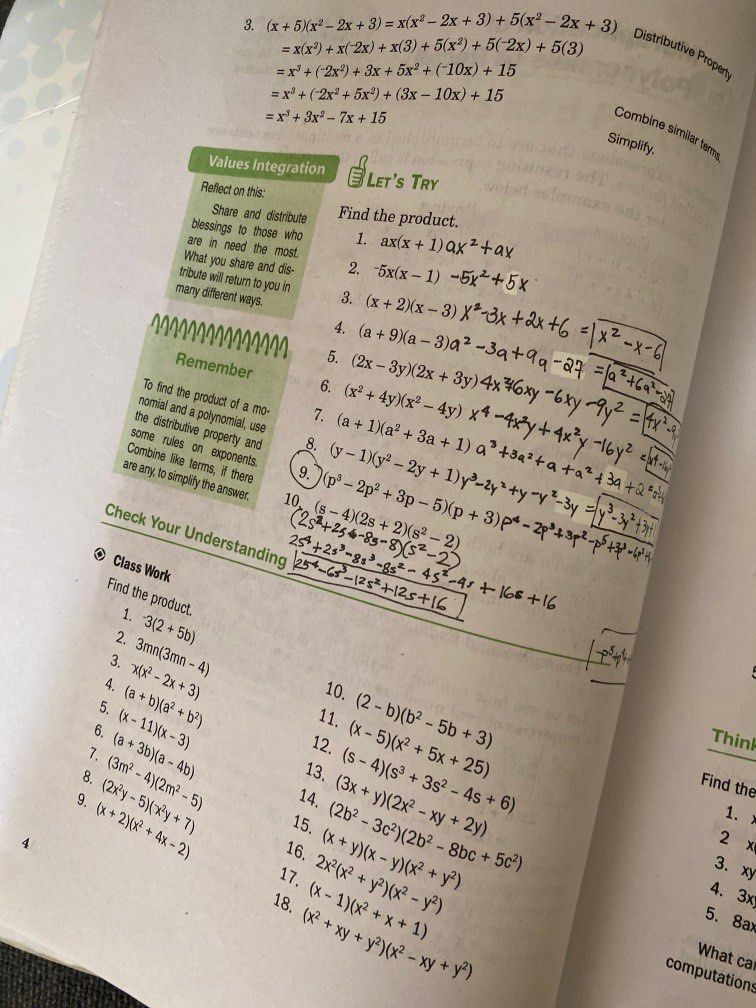 3. (x + 5)(x² – 2x + 3) = x(x² – 2x + 3) + 5(x² – 2x + 3) Distributive Property
= x(x²) + x(⁻2x) + x(3) + 5(x²) + 5(⁻2x) + 5(3)
= x³ + (⁻2x²) + 3x + 5x² + (⁻10x) + 15
= x³ + (⁻2x² + 5x²) + (3x – 10x) + 15 Combine similar terms.
= x³ + 3x² – 7x + 15 Simplify.
Values Integration
Reflect on this:
Share and distribute
blessings to those who
are in need the most.
What you share and dis-
tribute will return to you in
many different ways.
Remember
To find the product of a mo-
nomial and a polynomial, use
the distributive property and
some rules on exponents.
Combine like terms, if there
are any, to simplify the answer.
LET'S TRY
Find the product.
1. ax(x + 1) ax² + ax
2. ⁻5x(x – 1) -5x² + 5x
3. (x + 2)(x – 3) x² - 3x + 2x + 6 = x² - x - 6
4. (a + 9)(a – 3) a² - 3a + 9a - 27 = a² + 6a² - 27
5. (2x – 3y)(2x + 3y) 4x² 6xy - 6xy - 9y² = 4x² - 9
6. (x² + 4y)(x² – 4y) x⁴ - 4x²y + 4x²y - 16y² =
7. (a + 1)(a² + 3a + 1) a³ + 3a² + a + a² + 3a + 2 =
8. (y – 1)(y² – 2y + 1) y³ - 2y² + y - y² - 3y = y³ - 3y² + 3y + 1
9. (p³ – 2p² + 3p – 5)(p + 3) p⁴ - 2p³ + 3p² - p5 +
10. (s – 4)(2s + 2)(s² – 2)
(2s² + 2s - 8s - 8)(s² - 2)
2s⁴ + 2s³ - 8s³ - 8s² - 4s² - 4s + 16s + 16
2s⁴ - 6s³ - 12s² + 12s + 16
Check Your Understanding
Class Work
Find the product.
1. ⁻3(2 + 5b)
2. 3mn(3mn – 4)
3. ⁻x(x² – 2x + 3)
4. (a + b)(a² + b²)
5. (x – 11)(x – 3)
6. (a + 3b)(a – 4b)
7. (3m² – 4)(2m² – 5)
8. (2x²y – 5)(⁻x²y + 7)
9. (x + 2)(x² + 4x – 2)
10. (2 – b)(b² – 5b + 3)
11. (x – 5)(x² + 5x + 25)
12. (s – 4)(s³ + 3s² – 4s + 6)
13. (3x + y)(2x² – xy + 2y)
14. (2b² – 3c²)(2b² – 8bc + 5c²)
15. (x + y)(x – y)(x² + y²)
16. 2x²(x² + y²)(x² – y²)
17. (x – 1)(x² + x + 1)
18. (x² + xy + y²)(x² – xy + y²)
4
Think
Find the
1.
2
3. xy
4. 3x
5. 8ax
What ca
computations